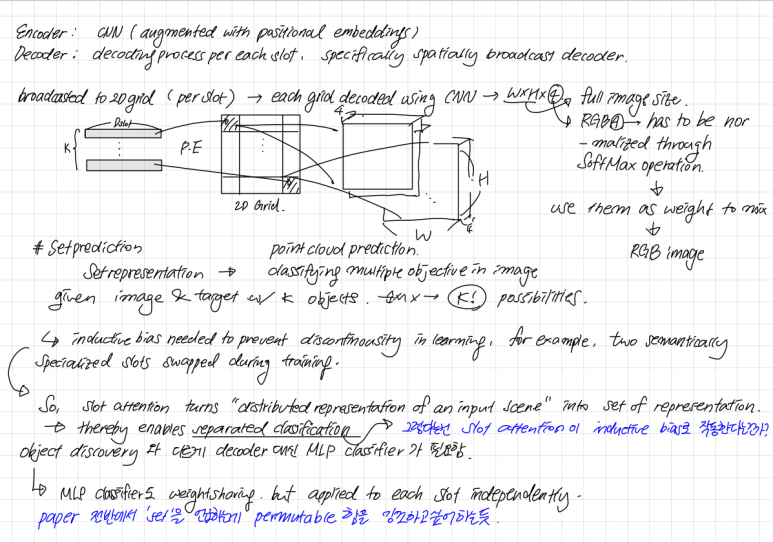 Encoder : CNN (augmented with positional embeddings)
Decoder : decoding process per each slot, specifically spatially broadcast decoder.
broadcasted to 2D grid (per slot) → each grid decoded using CNN → W×H×4 → full image size.
→ RGBA → has to be nor
-malized through
SoftMax operation.
↓
use them as weight to mix
↓
RGB image
Dslot
K{
P.E
2D Grid.
4
W
H
4
# Set prediction
point cloud prediction.
Set representation → classifying multiple objective in image
given image & target w/ k objects. → K! possibilities.
↳ inductive bias needed to prevent discontinousity in learning, for example, two semantically
specialized slots swapped during training.
So, slot attention turns "distributed representation of an input scene" into set of representation.
→ thereby enables separated classification → 그렇다면 slot attention이 inductive bias로 작동한다는건가?
object discovery 와 다르게 decoder 대신 MLP classifier 가 필요함.
↳ MLP classifier도 weight sharing. but applied to each slot independently.
paper 전반에서 'set'을 언급하는게 permutable 함을 강조하고 싶어하는듯.